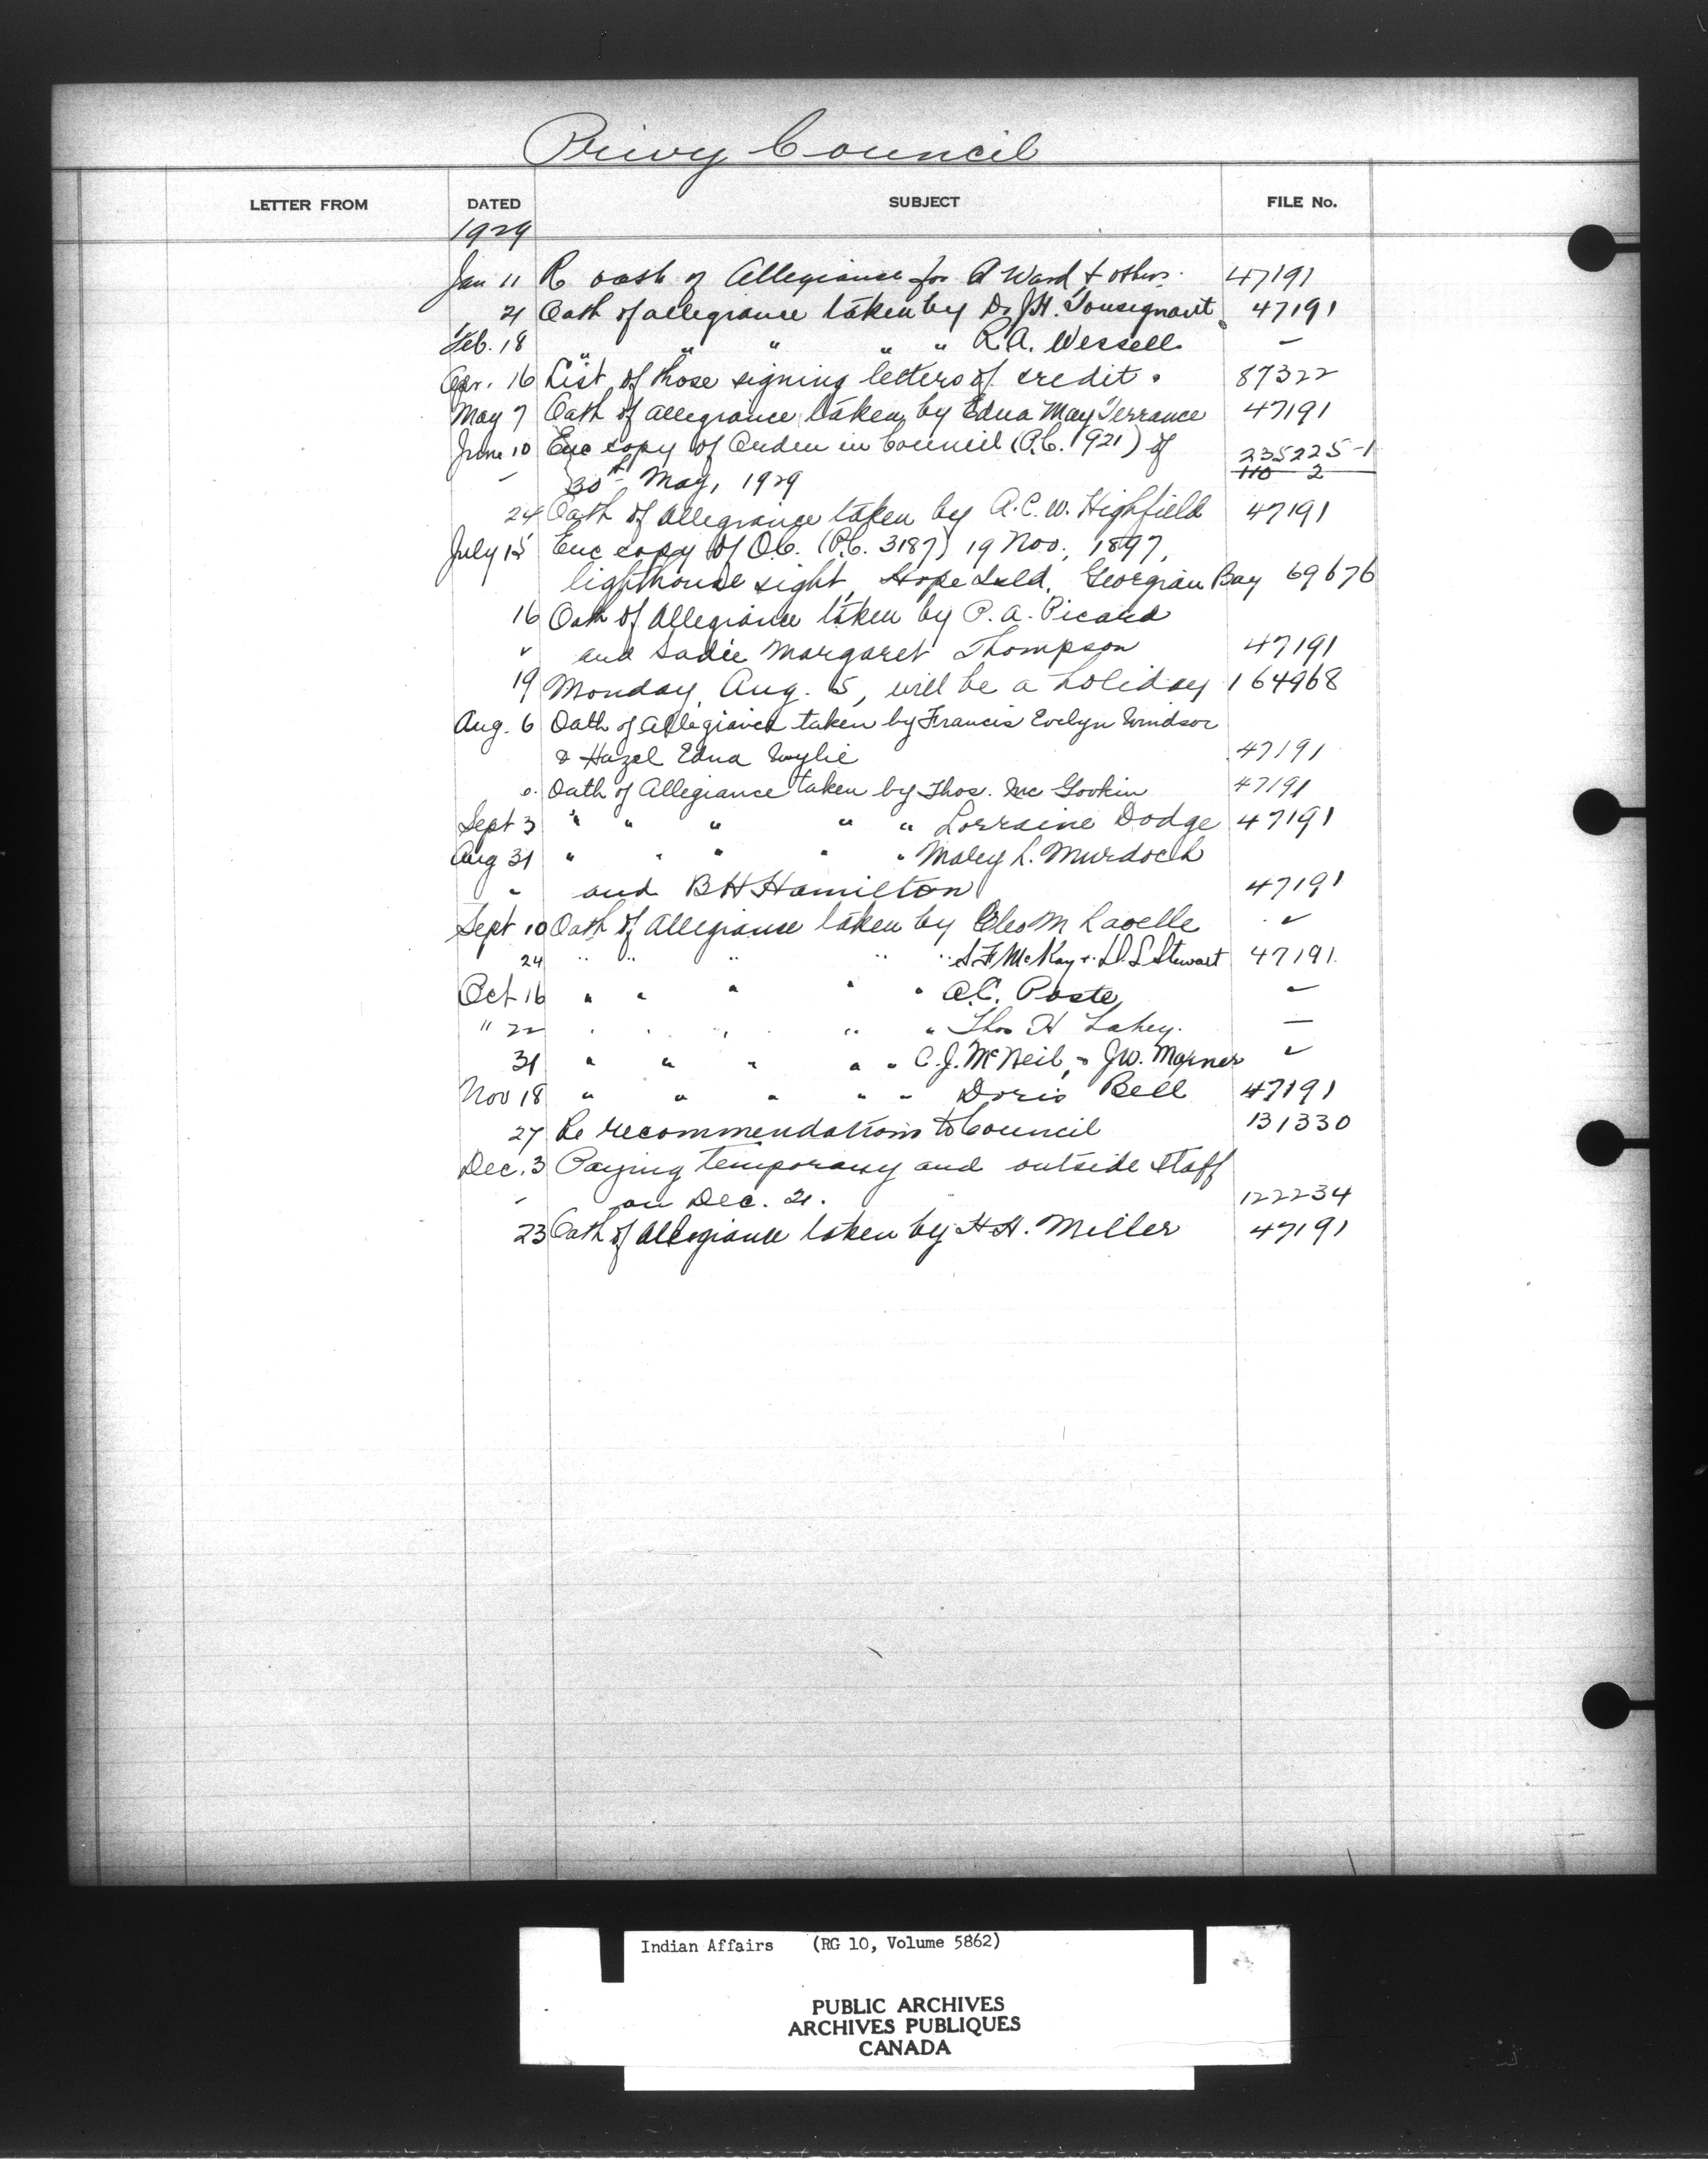 Privy Council
LETTER FROM DATED SUBJECT FILE No.
1929
Jan 11 R oath of Allegiance for A Ward & others. 47191
21 Oath of allegiance taken by Dr J.H. Tousignant 47191
Feb. 18 " " " " " R.A. Wessell. –
Apr. 16 List of those signing letters of credit. 87322
May 7 Oath of allegiance taken by Edna May Terrance 47191
June 10 Enc copy of Order in Council (P.C. 921) of 235225-1
– 30th May, 1929 110 2
24 Oath of Allegiance taken by A.C.W. Highfield 47191
July 15 Enc copy of O.C. (P.C. 3187) 19 Nov., 1897,
lighthouse sight, Hope Isld, Georgian Bay 69676
16 Oath of Allegiance taken by P.A. Picard
" and Sadie Margaret Thompson 47191
19 Monday, Aug. 5, will be a holiday 164968
Aug. 6 Oath of Allegiance taken by Francis Evelyn Windsor
& Hazel Edna Wylie 47191
" Oath of Allegiance taken by Thos. Mc Gookin 47191
Sept 3 " " " " " Lorraine Dodge 47191
Aug 31 " " " " " Mary L. Murdoch
" and B H Hamilton 47191
Sept 10 Oath of Allegiance taken by Cleo M Lavelle "
24 " " " " " S F McKay & D. S Stewart 47191
Oct 16 " " " " " A.C. Poste, –
" 22 " " " " " Thos H Lahey. –
31 " " " " " C.J. McNeil, & J.W. Marner "
Nov 18 " " " " " Doris Bell 47191
27 Re recommendations to Council 131330
Dec. 3 Paying temporary and outside staff
– on Dec. 21. 122234
23 Oath of Allegiance taken by H H. Miller 47191
Indian Affairs (RG 10, Volume 5862)
PUBLIC ARCHIVES
ARCHIVES PUBLIQUES
CANADA